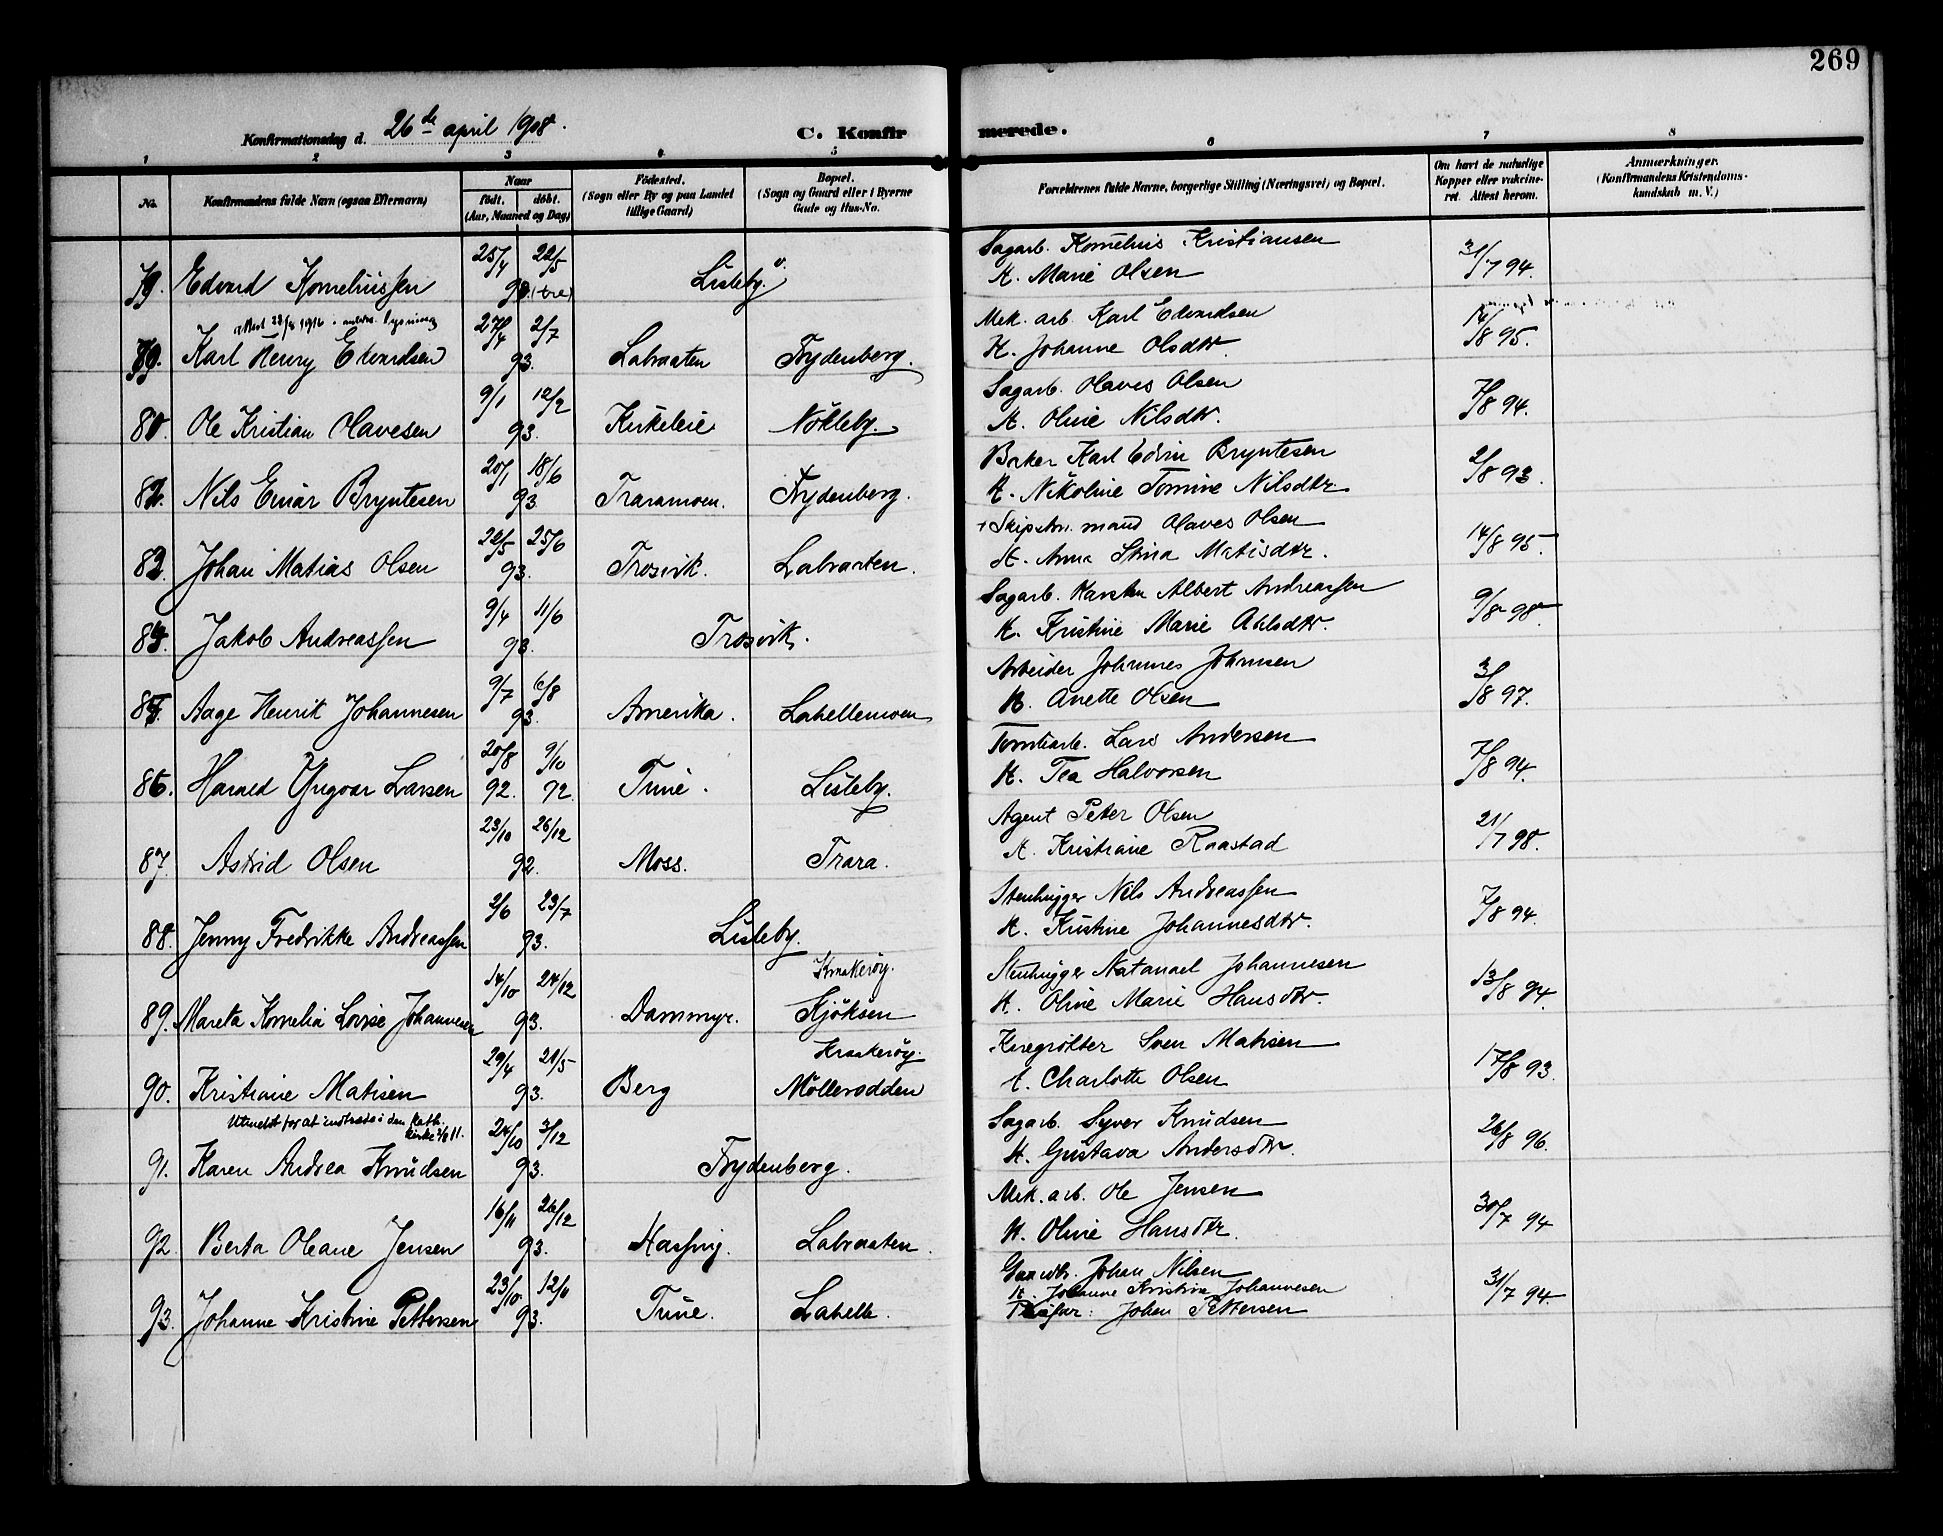 269
Konfirmationsdag d. 26de april 1908.
C. Konfirmerede.
1 2 3 4 5 6 7 8
No.
Konfirmandens fulde Navn (ogsaa Efternavn)
Naar
födt. döbt.
(Aar, Maaned og Dag)
Födested.
(Sogn eller By og paa Landet
tillige Gaard)
Bopæl.
(Sogn og Gaard eller i Byerne
Gade og Hus-No.
Forældrenes fulde Navne, borgerlige Stilling (Næringsvei) og Bopæl.
Om havt de naturlige
Kopper eller vakcine-
ret. Attest herom.
Anmærkninger.
(Konfirmandens Kristendoms-
kundskab m. V.)
Edvard Korneliussen 25/4 22/5 Lisleby. Sagarb. Kornelius Kristiansen 31/7 94.
K. Marie Olsen
27/4 2/7 Mek. arb. Karl Edvardsen 14/8 95.
Karl Henry Edvardsen 93. Labraaten Frydenberg. K. Johanne Olsdtr.
9/1 12/2 Sagarb. Olaves Olsen 7/8 94.
Ole Kristian Olavesen 93. Kirkeleie Nökleby. K. Oline Nilsdtr.
20/1 18/6 Baker Karl Edvin Bryntesen 2/8 93.
Nils Einar Bryntesen 93 Traramoen. Frydenberg. K. Nikoline Tomine Nilsdtr.
22/5 25/6 mand Olaves Olsen 14/8 95.
Johan Matias Olsen 93. Trosvik. Labraaten. K. Anna Stina Matisdtr.
9/4 11/6 Sagarb. Karsten Albert Andreassen 9/8 98
Jakob Andreassen 93. Trosvik. K. Kristine Marie
9/7 6/8 Arbeider Johannes Johnsen 3/8 97.
Aage Henrik Johannesen 93. Amerika. Labellemoen K. Anette Olsen
20/8 9/10 Tomtearb. Lars Andersen 7/8 94.
86. Harald Yngvar Larsen 92. 92. Tune. Lisleby. K. Tea Halvorsen
23/10 26/12 Agent Peter Olsen 21/7 98.
87. Astrid Olsen 92. Moss. Trara. K. Kristiane Raastad
2/6 23/7 Stenhugger Nils Andreassen 7/8 94.
88. Jenny Fredrikke Andreassen 93. Lisleby. K. Kristine Johannesdtr.
14/10 24/12 Kraakeröy. Stenhugger Natanael Johannesen 13/8 94.
89. Mareta Kornelia Lovise Johannesen 93. Dammyr. Kjöksen K. Oline Marie Hansdtr.
29/4 21/5 Kraakeröy. Sven Matisen 17/8 93.
90. Kristiane Matisen 93. Berg Möllerodden K. Charlotte Olsen
Utmeldt for at indtræde i den kath. kirke 2/8 11.
24/10 3/12 Sagarb. Syver Knudsen 26/8 96.
91. Karen Andrea Knudsen 93. Frydenberg. K. Gustava Andersdtr.
16/11 26/12 Mek. arb. Ole Jensen 30/7 94
92. Berta Oleane Jensen 93. Hassing. Labraaten. K. Oline Hansdtr.
23/10 12/6 Johan Nilsen 31/7 94.
K. Johanne Kristine Johannesen
93. Johanne Kristine Pettersen 93. Tune. Labelle. Pleiefar: Johan Pettersen